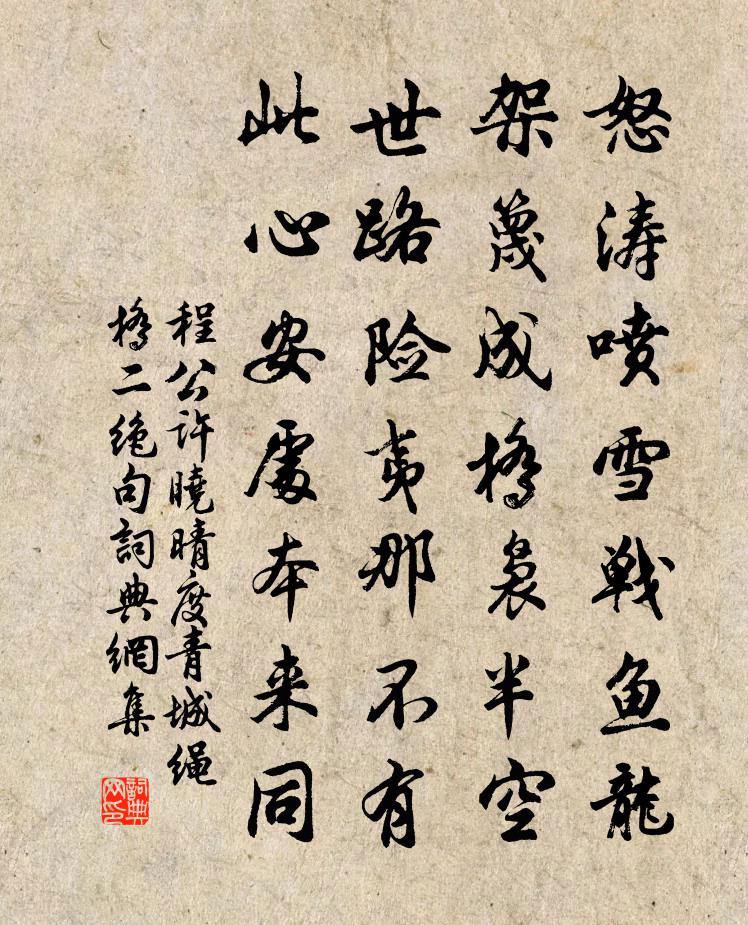 怒涛喷雪戦鱼龍
架篾成橋袅半空
世路险夷那不有
此心安處本来同
程公许曉晴度青城绳
橋二绝句詞典網集
詞典网印